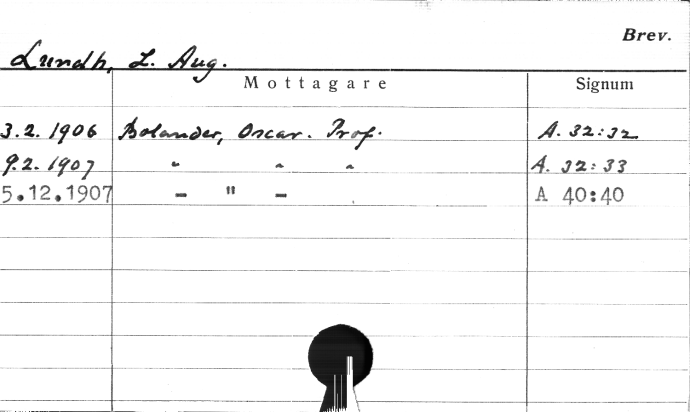 Brev.
Lundh, L. Aug.
Mottagare Signum
3.2. 1906 Bolander, Oscar. Prof. A. 32:32
9.2. 1907 " " " A. 32:33
5.12.1907 - " - A 40:40